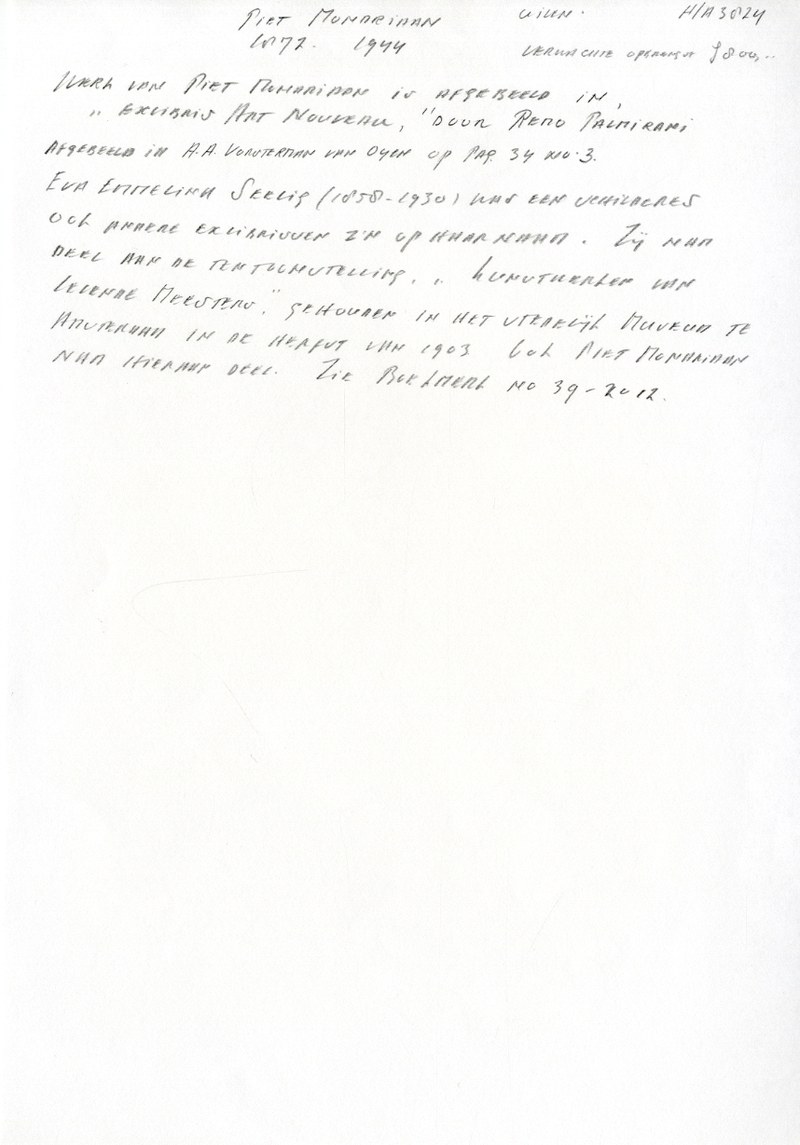 Piet Mondriaan H/A3824
1872. 1944 verwachte opbrengst 800,--
Werk van Piet Mondriaan is afgebeeld in,
„ Exlibris Art Nouveau, " door Remo Palmirani
Afgebeeld in A.A. Vorsterman van Oyen op Pag. 34 no. 3.
Eva Emmelina Seelig (1858-1930) was een schilderes
ook andere exlibrissen zijn op haar naam. Zij nam
deel aan de tentoonstelling. „ Kunstwerken van
Levende Meesters." gehouden in het Stedelijk Museum te
Amsterdam in de herfst van 1903 ook Piet Mondriaan
nam hieraan deel. Zie Boekmerk no 39-2012.